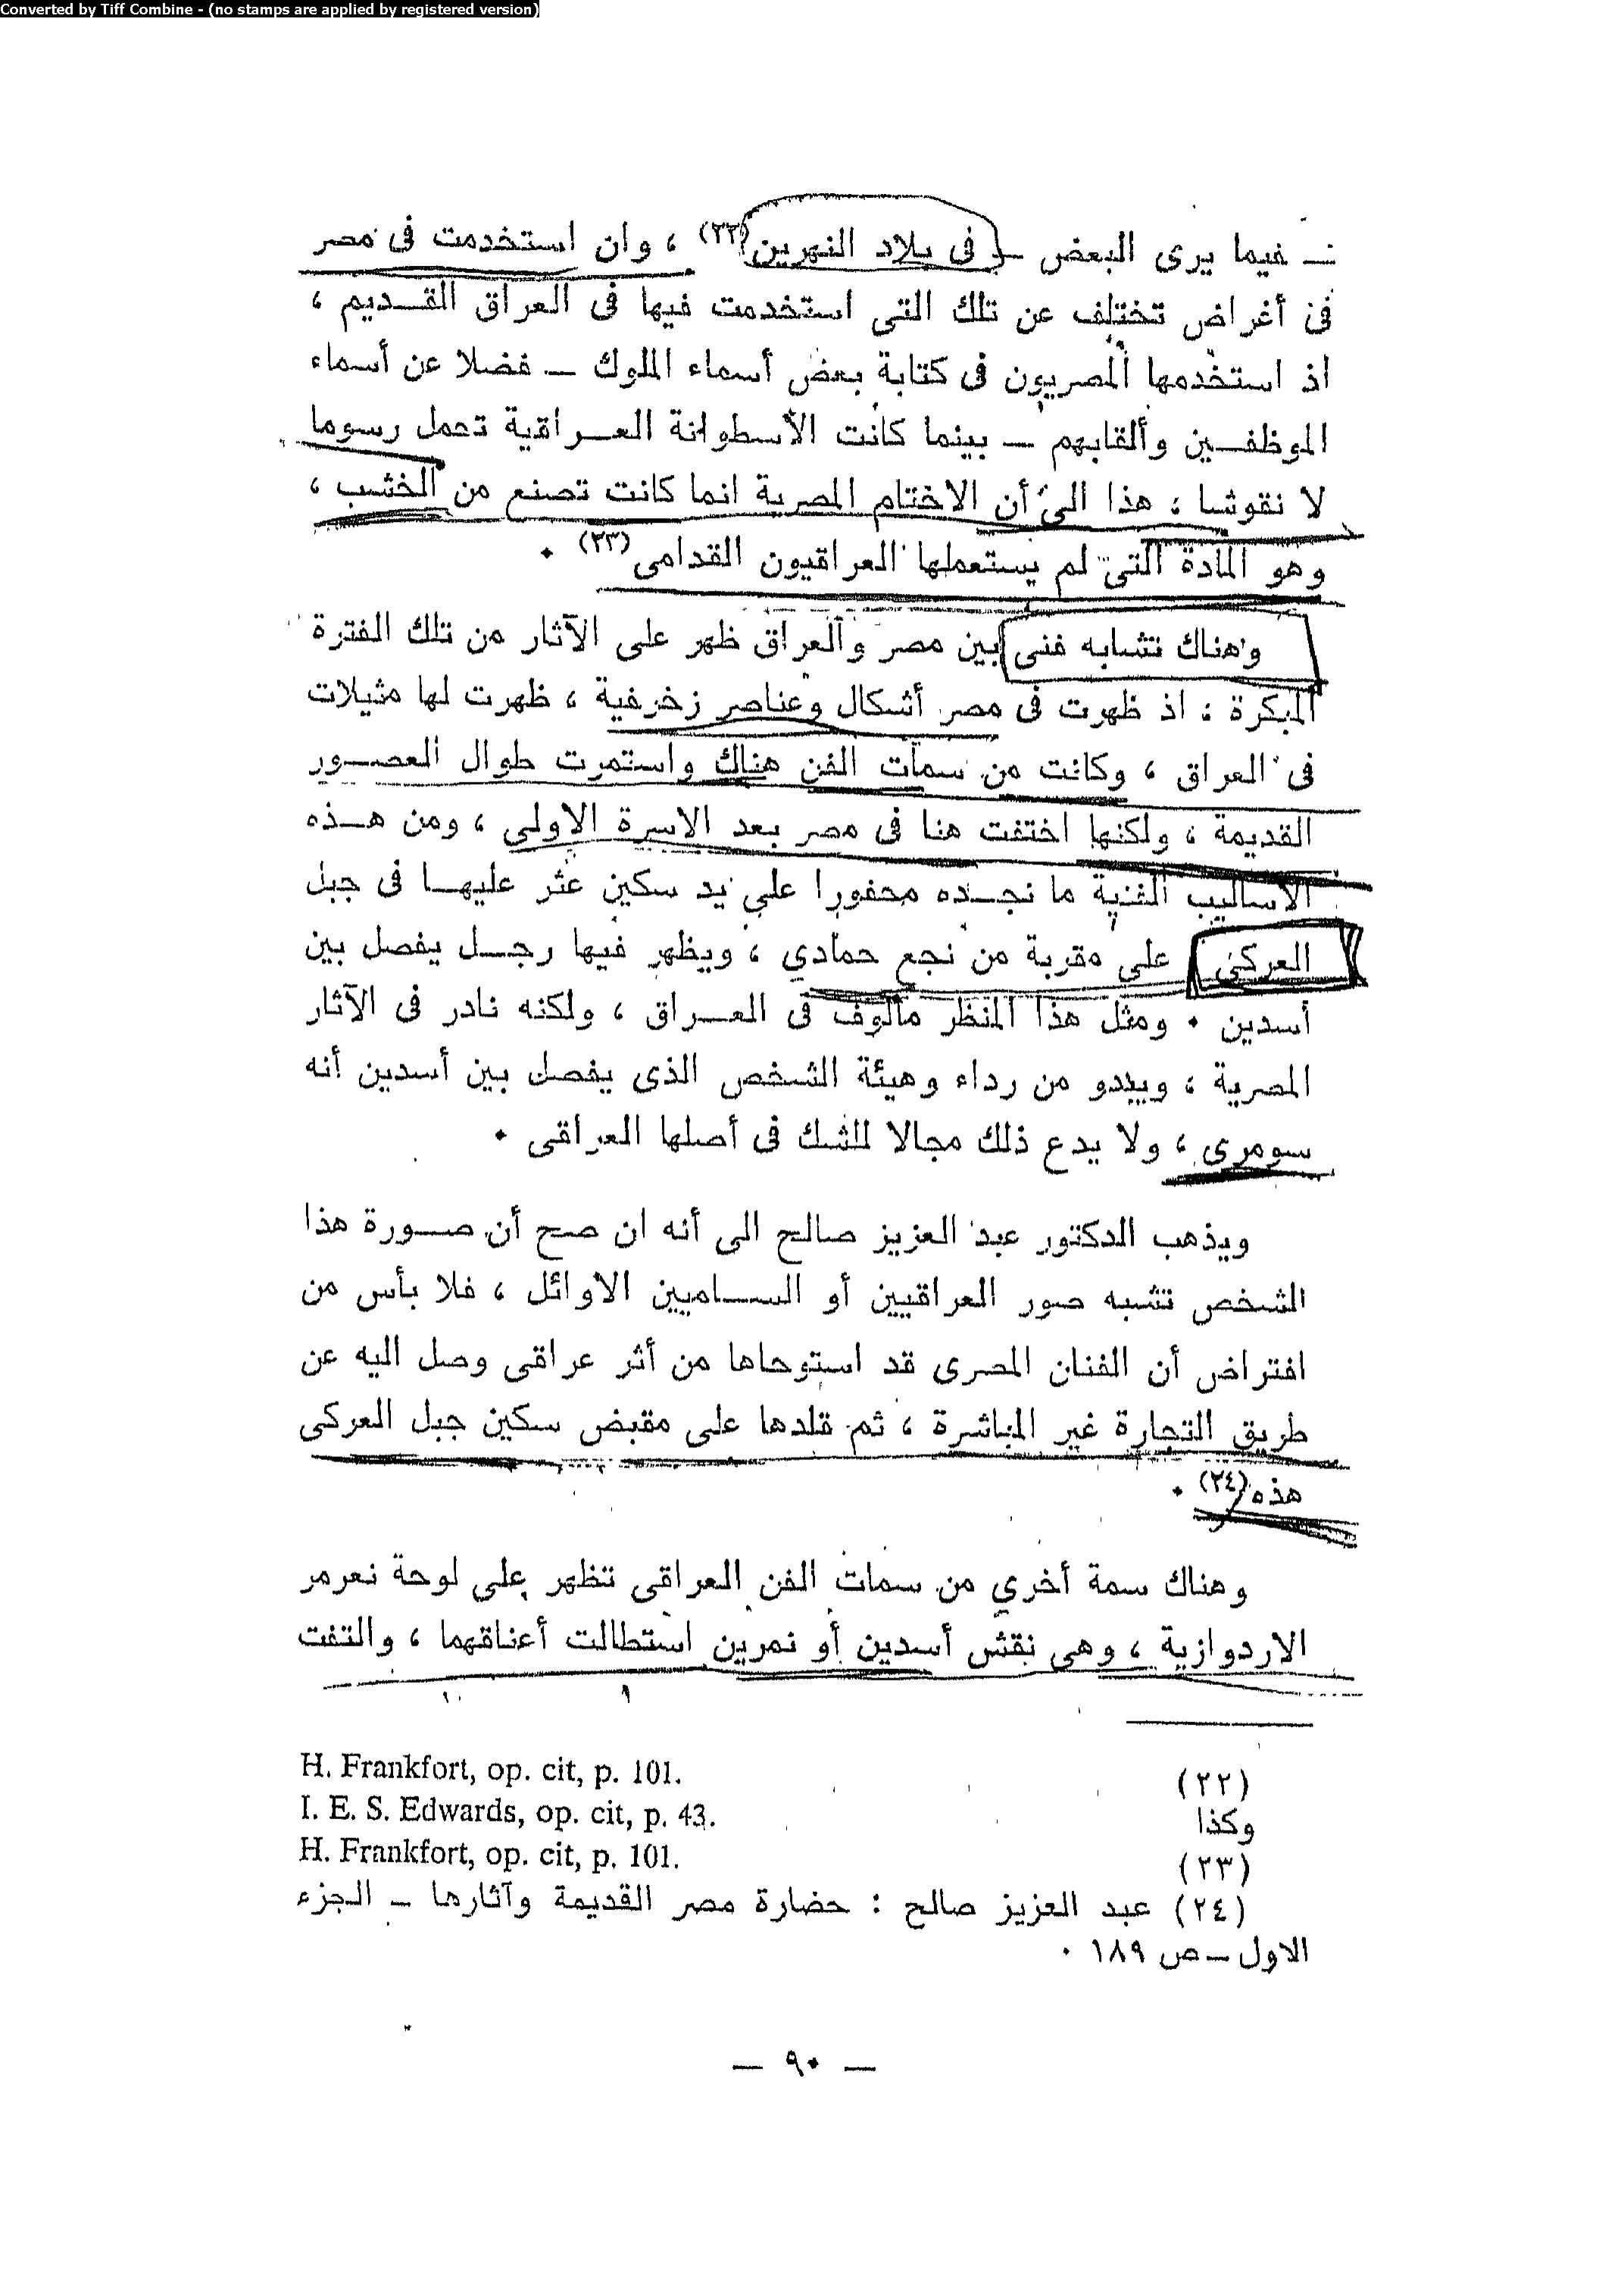 Converted by Tiff Combine - (no stamps are applied by registered version)
ــ فيما يرى البعض ــ فى بلاد النهرين(٢٢) ، وان استخدمت فى مصر
فى أغراض تختلف عن تلك التى استخدمت فيها فى العراق القـديم ،
اذ استخدمها المصريون فى كتابة بعض أسماء الملوك ــ فضلا عن أسماء
الموظفـين وألقابهم ــ بينما كانت الأسطوانة العـراقية تحمل رسوما
لا نقوشا ، هذا الى أن الاختام المصرية انما كانت تصنع من الخشب ،
وهو المادة التى لم يستعملها العراقيون القدامى(٢٣) ٠
وهناك تشابه فنى بين مصر والعراق ظهر على الآثار من تلك الفترة
المبكرة ، اذ ظهرت فى مصر أشكال وعناصر زخرفية ، ظهرت لها مثيلات
فى العراق ، وكانت من سمات الفن هناك واستمرت طوال العصـور
القديمة ، ولكنها اختفت هنا فى مصر بعد الاسرة الاولى ، ومن هـذه
الاساليب الفنية ما نجـده محفورا على يد سكين عثر عليهـا فى جبل
العركى على مقربة من نجع حمادي ، ويظهر فيها رجـل يفصل بين
أسدين ٠ ومثل هذا المنظر مألوف فى العـراق ، ولكنه نادر فى الآثار
المصرية ، ويبدو من رداء وهيئة الشخص الذى يفصل بين أسدين أنه
سومرى ، ولا يدع ذلك مجالا للشك فى أصلها العراقى ٠
ويذهب الدكتور عبد العزيز صالح الى أنه ان صح أن صـورة هذا
الشخص تشبه صور العراقيين أو السـاميين الاوائل ، فلا بأس من
افتراض أن الفنان المصرى قد استوحاها من أثر عراقى وصل اليه عن
طريق التجارة غير المباشرة ، ثم قلدها على مقبض سكين جبل العركى
هذه(٢٤) ٠
وهناك سمة أخري من سمات الفن العراقى تظهر على لوحة نعرمر
الاردوازية ، وهى نقش أسدين أو نمرين استطالت أعناقهما ، والتفت
(٢٢) H. Frankfort, op. cit, p. 101.
وكذا I. E. S. Edwards, op. cit, p. 43.
(٢٣) H. Frankfort, op. cit, p. 101.
(٢٤) عبد العزيز صالح : حضارة مصر القديمة وآثارها ــ الجزء
الاول ــ ص ١٨٩ ٠
— ٩٠ —